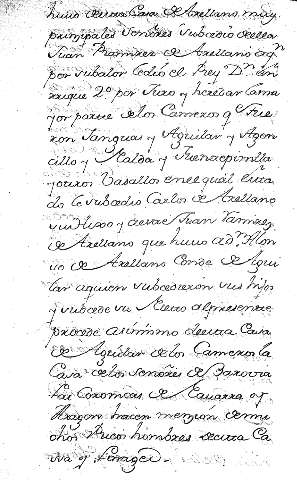 huvo de esta Casa de Arellano muy
principales Señores subcedio de ella
Juan Ramirez de Arellano aqn
por su balor cedio el Rey Dn En
rrique 2º por Juro y heredad la ma
yor parte de los Cameros qe fue
ron Yanguas y Aguilar y Agen
cillo y Nalda y Fuenzepinilla
y otros Vasallos en el qual Esta
do le subcedio Carlos de Arellano
su Hijo y a este Juan Ramirez
de Arellano que huvo a Dn Alon
so de Arellano Conde de Agui
lar a quien subcedieron sus hijos
y subcede su Nieto al presente
procede asimismo de esta Casa
de Aguilar de los Cameros la
Casa de los Señores de
las Coronicas de Navarra y
Aragon hacen mencion de mu
chos Ricos hombres de esta Ca
sa y